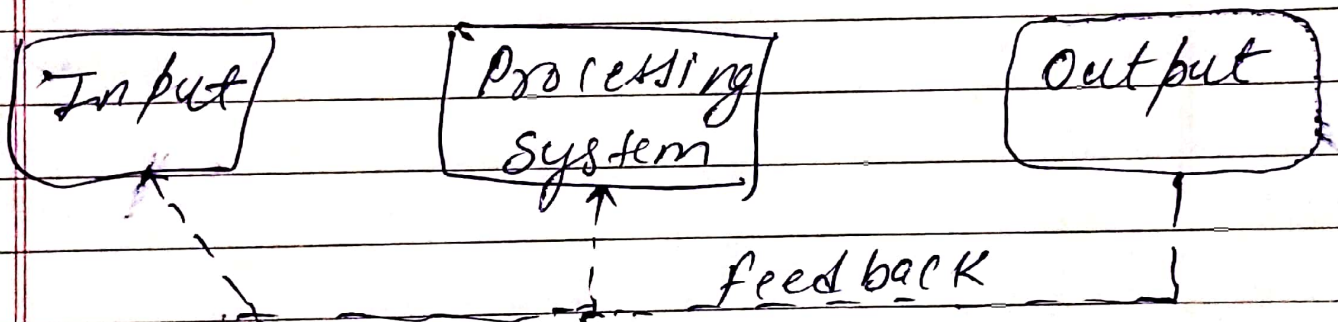 Input
Processing
system
Output
feedback